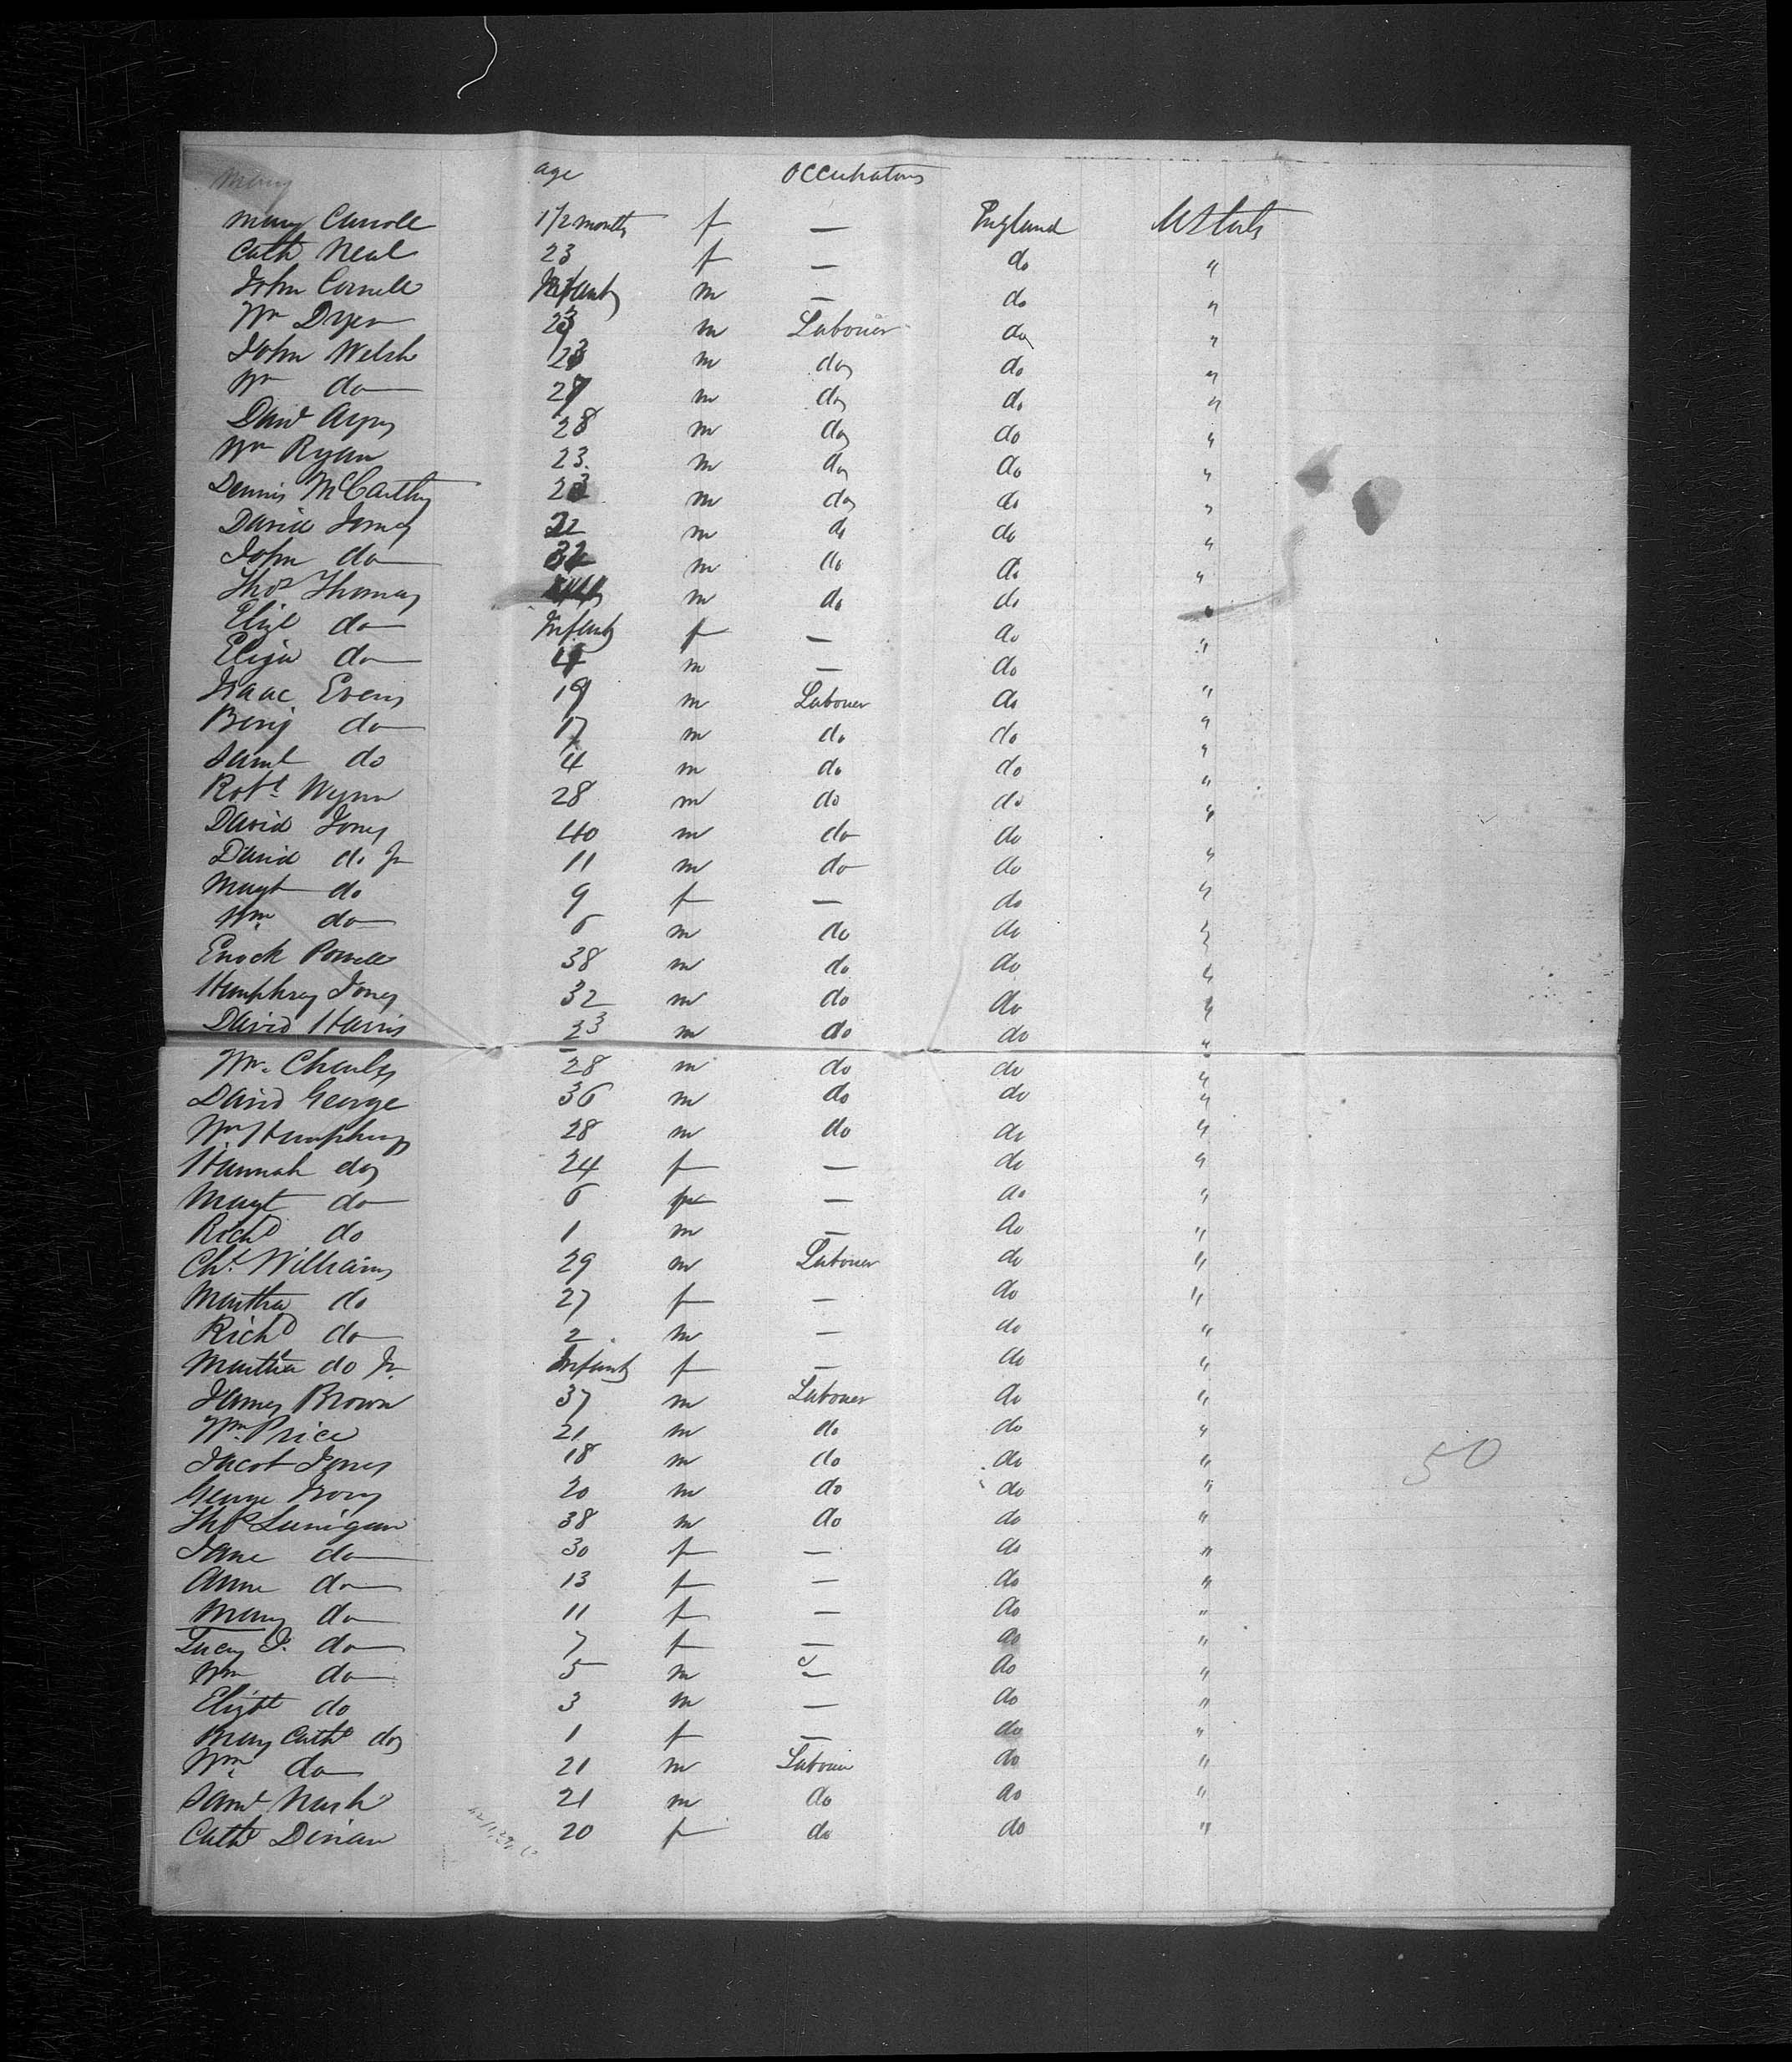 Mary
age Occupations
Mary Carroll 1 1/2 month f — England U States
Cath Neal 23 f — do "
John Cornell Infant m — do "
Wm Dyer 23 m Labourer do "
John Welsh 23 m do do "
Wm do 27 m do do "
28 m do do "
Wm Ryan 23 m do do "
Dennis McCarthy 23 m do do "
David Jones 22 m do do "
John do 32 m do do "
Thos Thomas m do do "
Eliz do Infant f — do "
Eliza do 4 m — do "
Isaac Evans 19 m Labourer do "
Benj do 17 m do do "
Saml do 4 m do do "
Robt Wynn 28 m do do "
David Jones 40 m do do "
David do Jr 11 m do do "
Magt do 9 f — do "
Wm do 6 m do do "
Enock Powell 38 m do do "
Humphrey Jones 32 m do do "
David Harris 23 m do do "
Wm. Charles 28 m do do "
David George 36 m do do "
Wm Humphreys 28 m do do "
Hannah do 24 f — do "
Magt do 6 f — do "
Richd do 1 m — do "
Chs Williams 29 m Labourer do "
Martha do 27 f — do "
Richd do 2 m — do "
Martha do Jr. Infant f — do "
James Brown 37 m Labourer do "
Wm. Price 21 m do do "
Jacob Jones 18 m do do "
George 20 m do do "
50
Thos Lunigan 38 m do do "
Jane do 30 f — do "
Anne do 13 f — do "
Mary do 11 f — do "
Lucy J. do 7 f — do "
Wm do 5 m — do "
Elizbt do 3 m — do "
Mary Cath do 1 f — do "
Wm do 21 m Labourer do "
Saml Nash 21 m do do "
Cath 20 f do do "